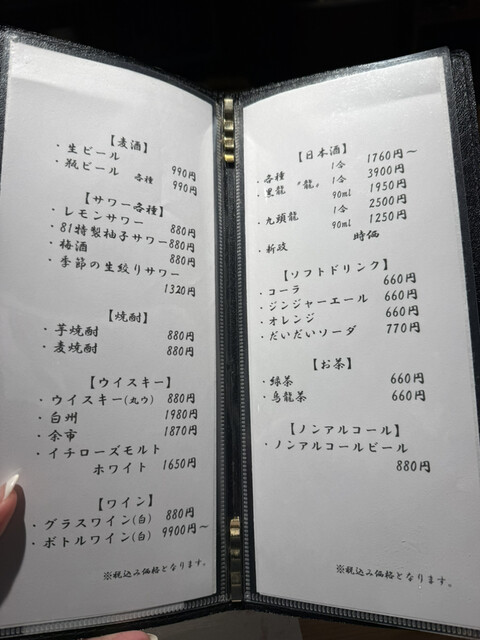 【麦酒】
・生ビール 990円
・瓶ビール 各種 990円
【サワー各種】
・レモンサワー 880円
・81特製柚子サワー 880円
・梅酒 880円
・季節の生絞りサワー
1320円
【焼酎】
・芋焼酎 880円
・麦焼酎 880円
【ウイスキー】
・ウイスキー(丸ウ) 880円
・白州 1980円
・余市 1870円
・イチローズモルト
ホワイト 1650円
【ワイン】
・グラスワイン(白) 880円
・ボトルワイン(白) 9900円～
※税込み価格となります。
【日本酒】
・各種 1合 1760円～
・黒龍 〝龍〟 1合 3900円
90ml 1950円
・九頭龍 1合 2500円
90ml 1250円
・新政 時価
【ソフトドリンク】
・コーラ 660円
・ジンジャーエール 660円
・オレンジ 660円
・だいだいソーダ 770円
【お茶】
・緑茶 660円
・烏龍茶 660円
【ノンアルコール】
・ノンアルコールビール
880円
※税込み価格となります。